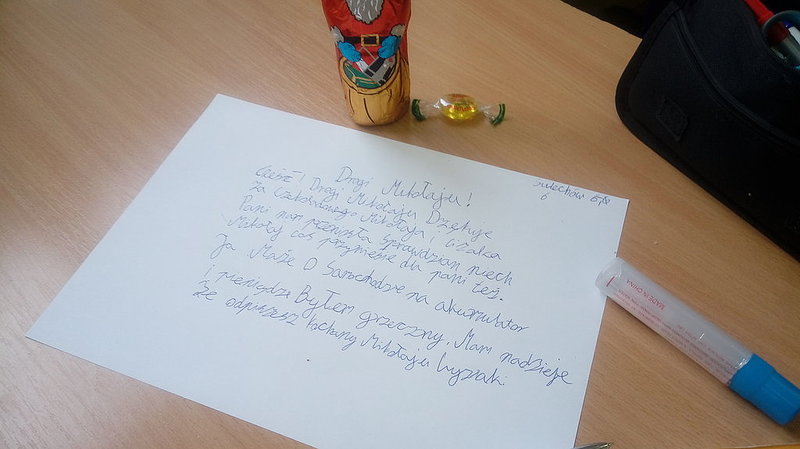 Sulechów
6
Drogi Mikołaju!
Cześć! Drogi Mikołaju Dzękuje
za czekoladowego Mikołaja i lizaka
Pani nam przeniosła sprawdzian niech
Mikołaj coś przyniesie dla pani też.
Ja Maże O Samochodzie na akumulator
i pieniądze Byłem grzeczny. Mam nadzieje
że odpiszesz kochany Mikołaju
MADE IN CHINA